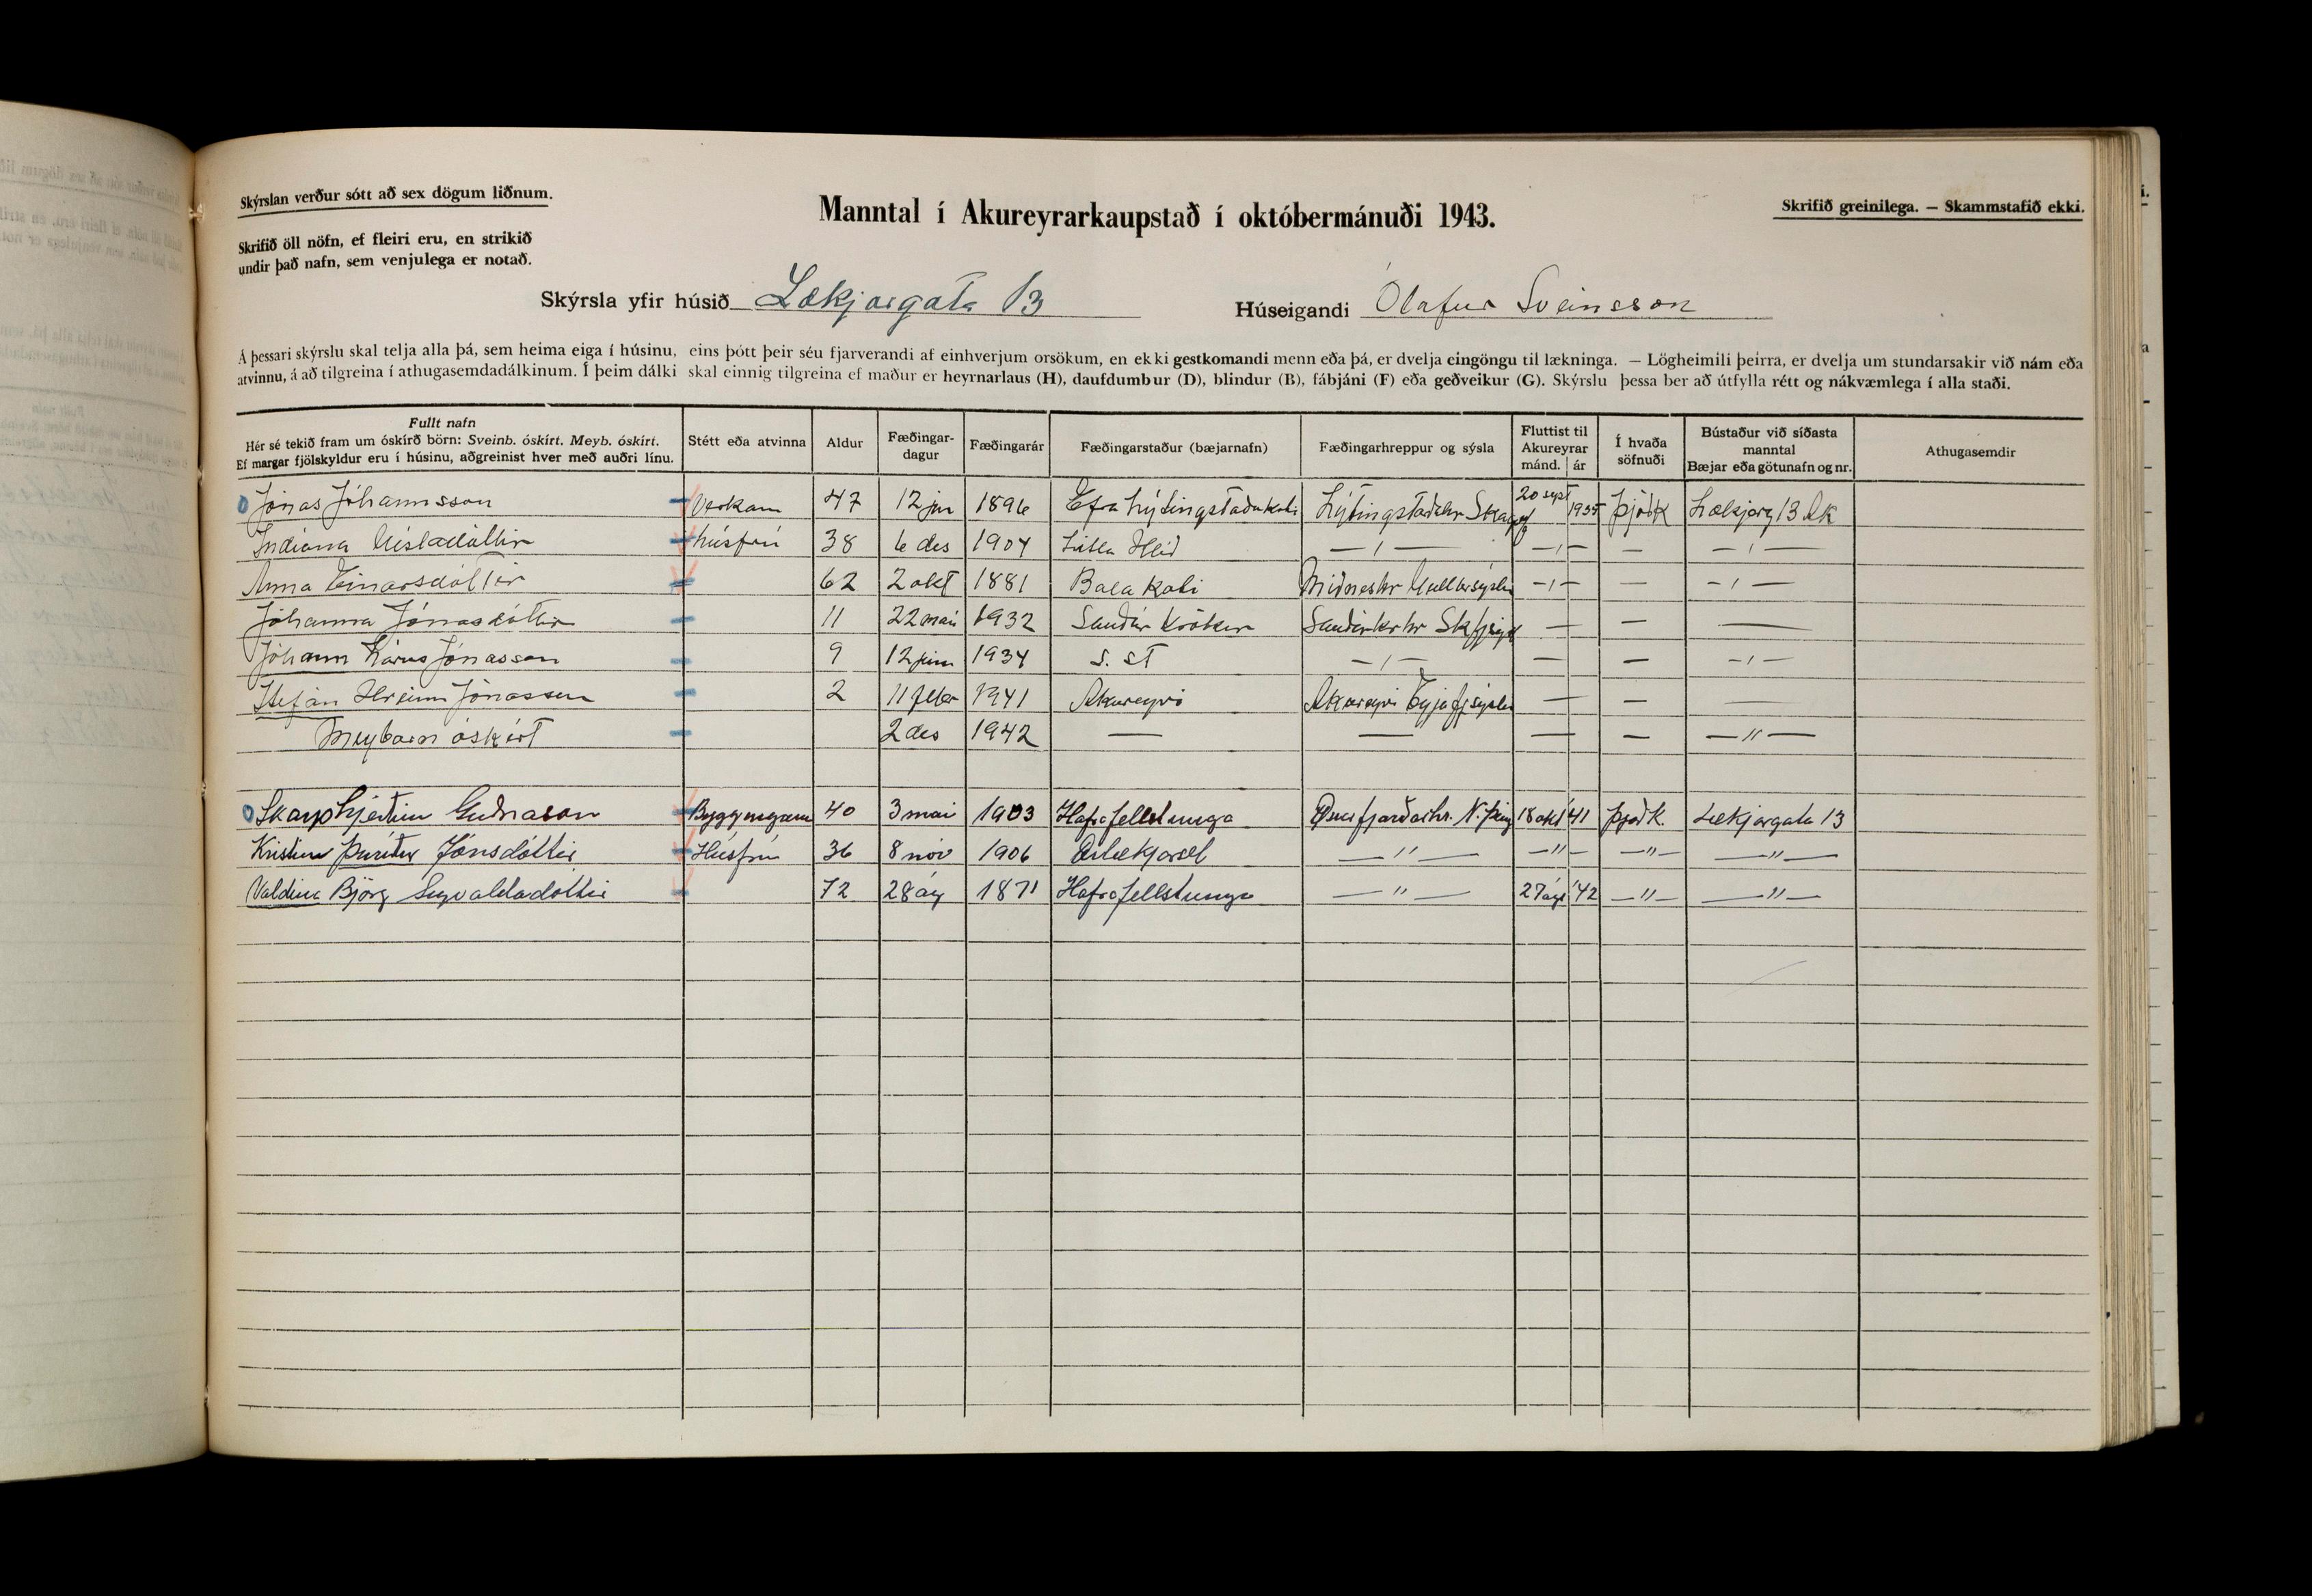 Skýrslan verður sótt að sex dögum liðnum.
Manntal í Akureyrarkaupstað í októbermánuði 1943.
Skrifið greinilega. — Skammstafið ekki.
Skrifið öll nöfn, ef fleiri eru, en strikið
undir það nafn, sem venjulega er notað.
Skýrsla yfir húsið Lækjargata 13 Húseigandi Ólafur Sveinsson
Á þessari skýrslu skal telja alla þá, sem heima eiga í húsinu, eins þótt þeir séu fjarverandi af einhverjum orsökum, en ekki gestkomandi menn eða þá, er dvelja eingöngu til lækninga. — Lögheimili þeirra, er dvelja um stundarsakir við nám eða
atvinnu, á að tilgreina í athugasemdadálkinum. Í þeim dálki skal einnig tilgreina ef maður er heyrnarlaus (H), daufdumbur (D), blindur (B), fábjáni (F) eða geðveikur (G). Skýrslu þessa ber að útfylla rétt og nákvæmlega í alla staði.
Fullt nafn
Hér sé tekið fram um óskírð börn: Sveinb. óskírt. Meyb. óskírt.
Ef margar fjölskyldur eru í húsinu, aðgreinist hver með auðri línu.
Stétt eða atvinna
Aldur
Fæðingar-
dagur
Fæðingarár
Fæðingarstaður (bæjarnafn)
Fæðingarhreppur og sýsla
Fluttist til
Akureyrar
mánd. ár
Í hvaða
söfnuði
Bústaður við síðasta
manntal
Bæjar eða götunafn og nr.
Athugasemdir
Jónas Jóhannsson Verkam 47 12 jan 1896 Efra Lýtingstaðakoti Lýtingstaðahr Skagf 20 sept 1935 Þjóðk Lækjarg 13 Ak
Indíana Gísladóttir húsfrú 38 6 des 1904 Litla Hlíð — ı — — ı — — — ı —
Anna Einarsdóttir 62 2 okt 1881 Bala Koti Miðneshr Gullbrsýslu — ı — — — ı —
Jóhanna Jónasdóttir 11 22 mai 1932 Sauðár Krókur Sauðárkr hr — — —
Jóhann Lárus Jónasson 9 12 júni 1934 s. st — ı — — — — ı —
Stefán Hreinn Jónasson 2 11 febr 1941 Akureyri Akureyri Eyjafjsýslu — — —
Meybarn óskírt 2 des 1942 — — — — — " —
Skarphjeðinn Guðnason Byggingam 40 3 mai 1903 Hafrafellstunga Öxarfjarðarhr. N. Þing 18 okt 41 Þjóðk. Lækjargata 13
Kristín Þuríður Jónsdóttir Húsfrú 36 8 nóv 1906 — " — — " — — " — — " —
Valdína Björg Sigvaldadóttir 72 28 ág 1871 Hafrafellstunga — " — 27 ág '42 — " — — " —